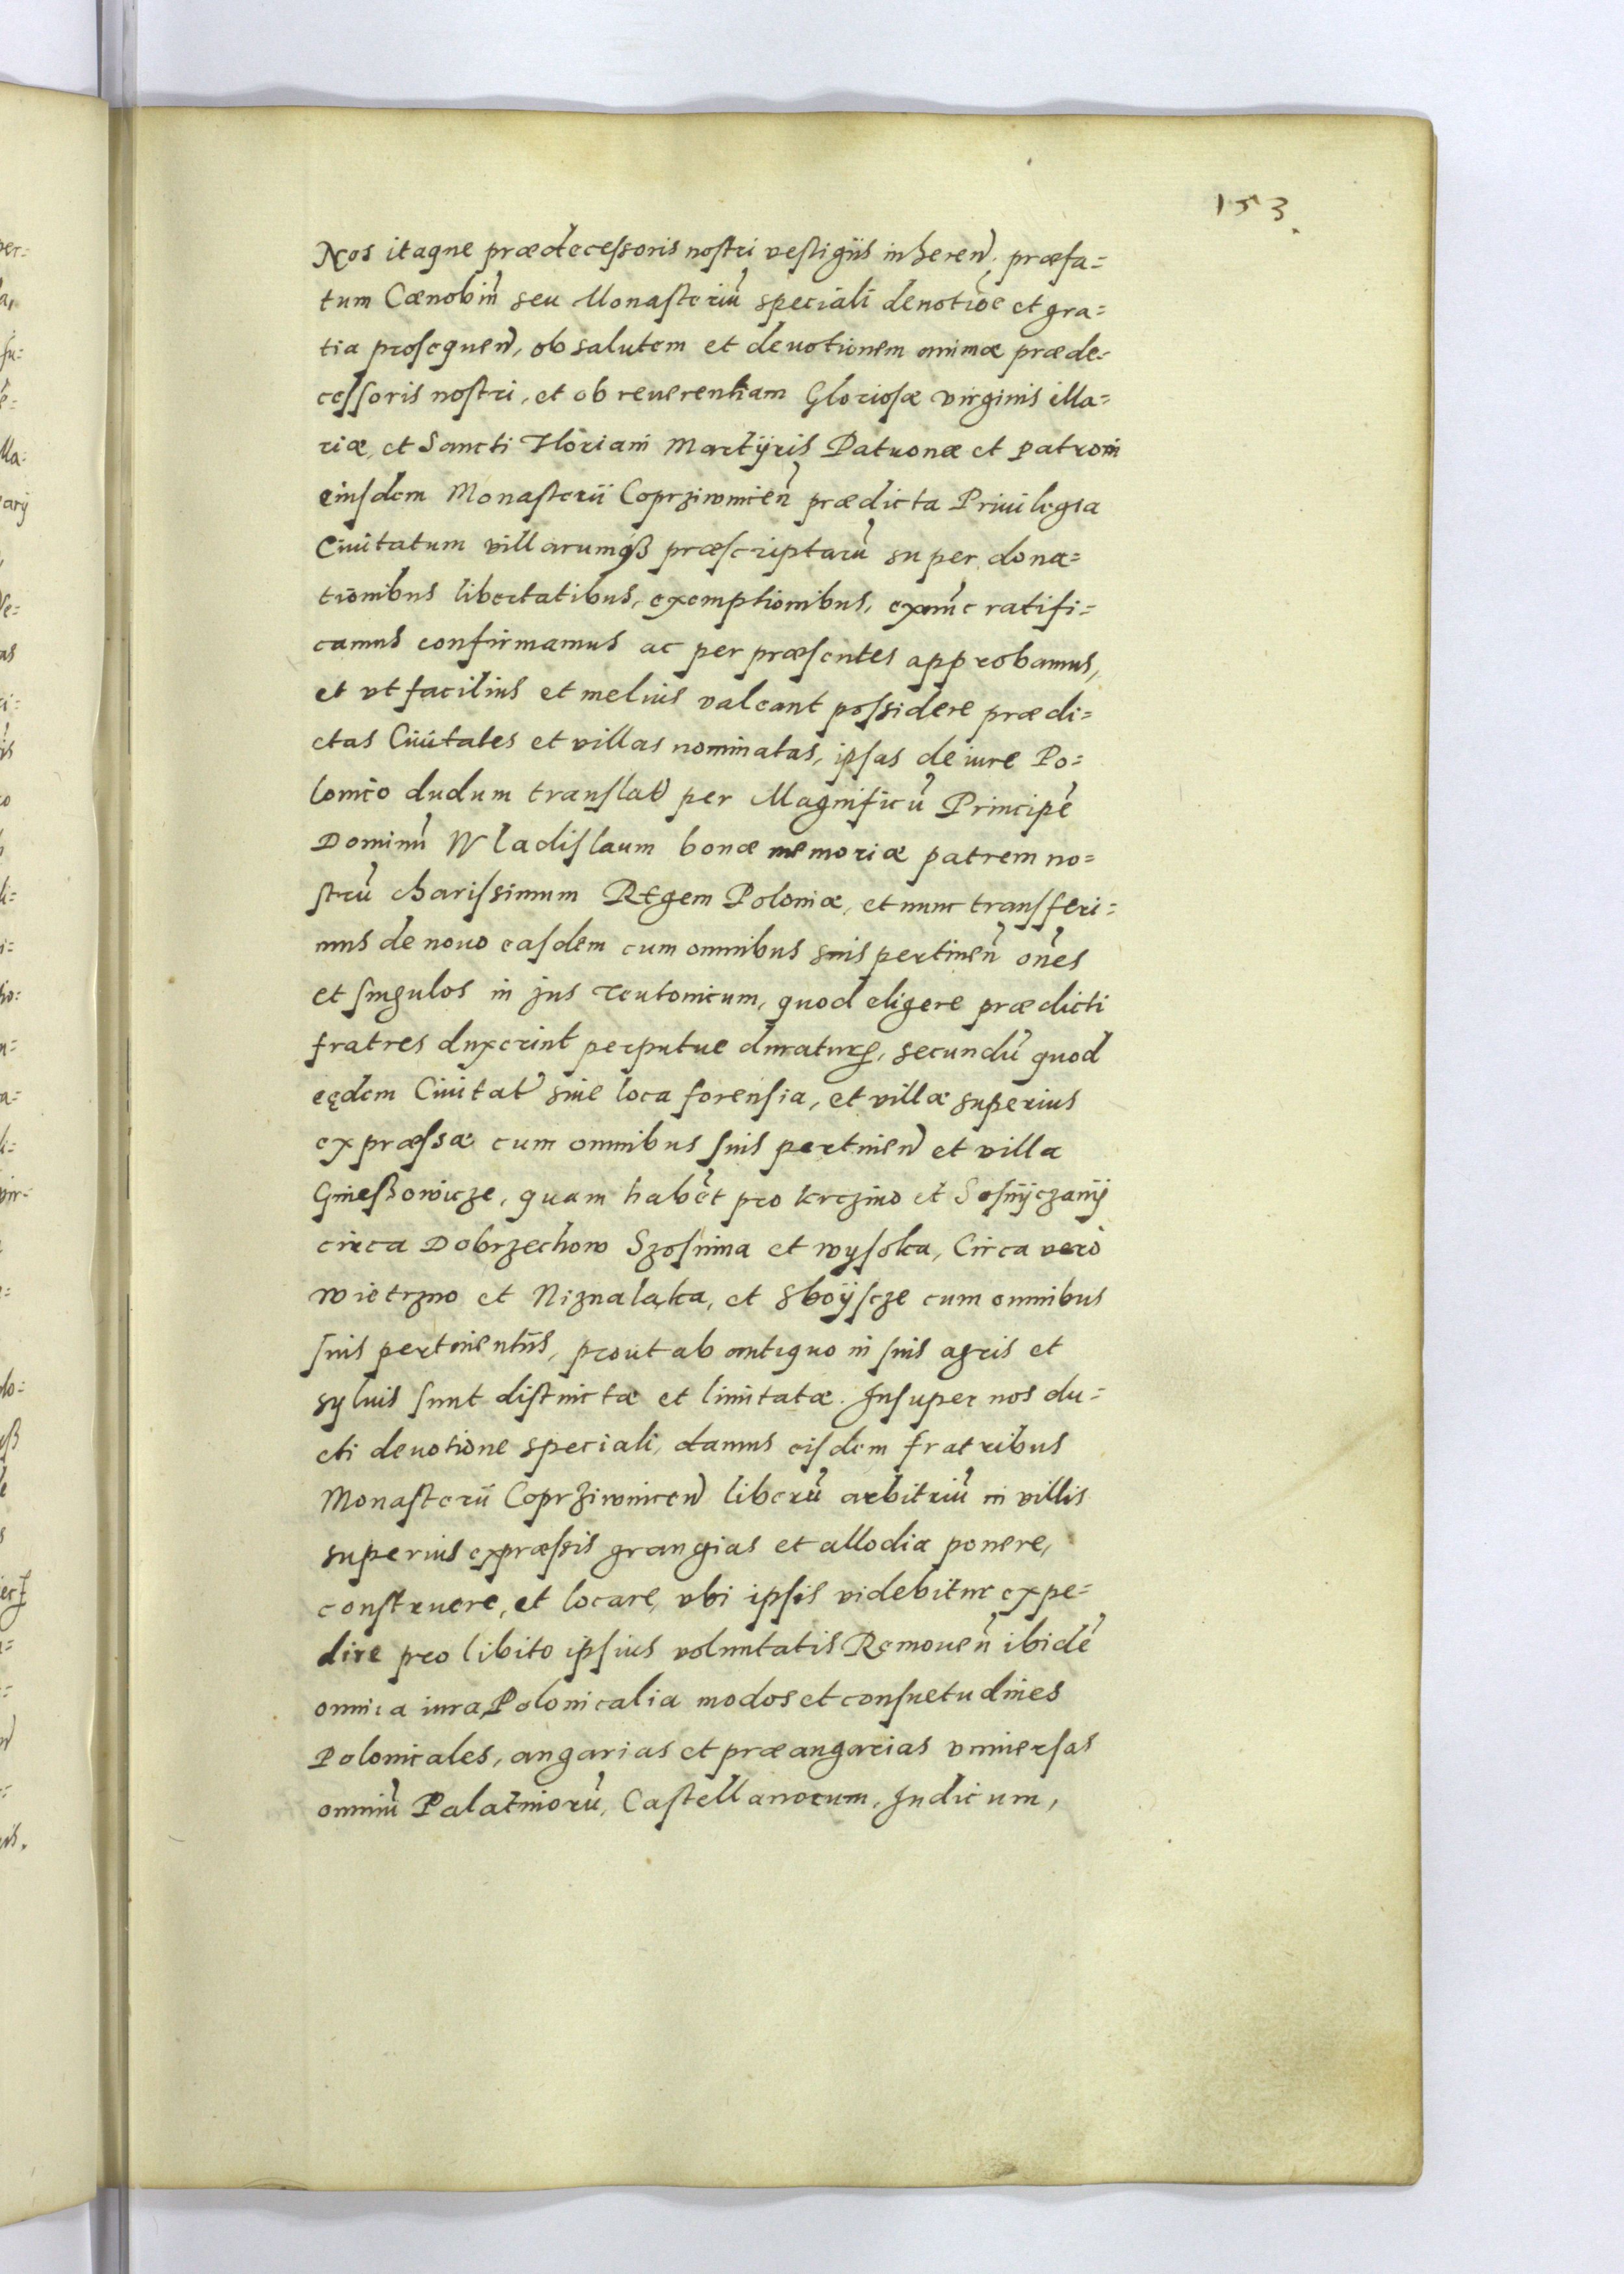 153.
Nos itaque prædecessoris nostri vestigiis inheren̄, præfa=
tum Cœnobiū seu Monasteriū speciali deuotiōe et gra=
tia prosequen̄, ob salutem et deuotionem animæ præde=
cessoris nostri, et ob reuerentiam Gloriosæ virginis Ma=
riæ, et Sancti Floriani Martÿris Patronæ et patroni
eiusdem Monasterii Coprziwnicen̄ prædicta Priuilegia
Ciuitatum villarumqꝫ præscriptarū super dona=
tionibus libertatibus, exemptionibus, exnūc ratifi=
camus confirmamus ac per præsentes approbamus,
et vt facilius et melius valeant possidere prædi=
ctas Ciuitates et villas nominatas, ipsas de iure Po=
lonico dudum translat̄ per Magnificū Principē
Dominū Wladislaum bonæ memoriæ patrem no=
strū charissimum Regem Poloniæ, et nunc transferi=
mus de nouo easdem cum omnibus suis pertinen̄ on̄es
et singulos in jus Teutonicum, quod eligere prædicti
fratres duxerint perputue duraturꝭ, secundū quod
eędem Ciuitat̄ siue loca forensia, et villæ superius
expræssæ cum omnibus suis pertinen̄ et villa
Gnießowicze, quam habēt pro Krczino et Sosnÿczanÿ
circa Dobrzechow Szosnina et wysoka, Circa verò
wietrzno et Niznaląka, et Sboÿscze cum omnibus
suis pertinentiis, prout ab antiquo in suis agris et
syluis sunt distinctæ et limitatæ. Insuper nos du=
cti deuotione speciali, damus eisdem fratribus
Monasterii Coprziwnicen̄ liberū arbitriū in villis
superius expræssis grangias et allodia ponere,
construere, et locare, vbi ipsis videbitur expe=
dire pro libito ipsius voluntatis Remouen̄ ibidē
omnia iura Polonicalia modos et consuetudines
Polonicales, angarias et præangarias vniuersas
omniū Palatinorū, Castellanorum, Judicum,